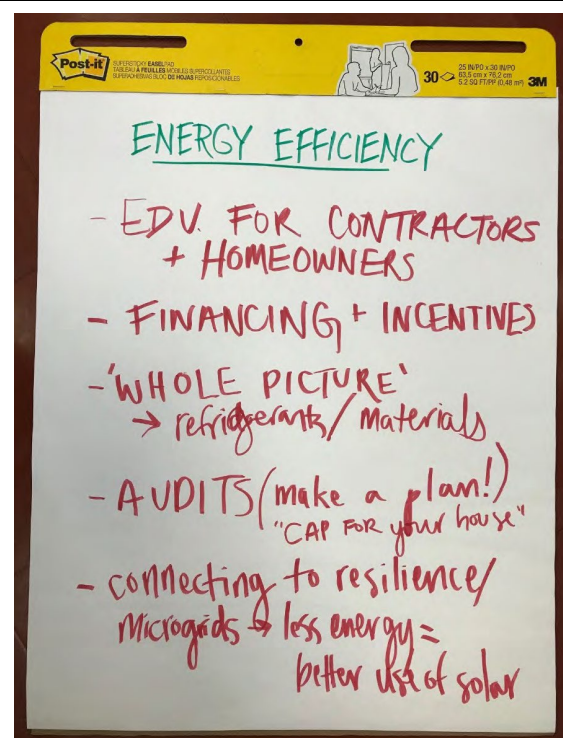 Post-it
SUPERSTICKY EASEL PAD
TABLEAU À FEUILLES MOBILES SUPERCOLLANTES
SUPERADHESIVAS BLOC DE HOJAS REPOSICIONABLES
30
25 IN/PO x 30 IN/PO
63,5 cm x 76,2 cm
5.2 SQ FT/PP (0,48 m²)
3M
ENERGY EFFICIENCY
- EDU. FOR CONTRACTORS
+ HOMEOWNERS
- FINANCING + INCENTIVES
- 'WHOLE PICTURE'
→ refridgerants/ materials
- AUDITS (make a plan!)
"CAP FOR your house"
- connecting to resilience/
Microgrids → less energy =
better use of solar